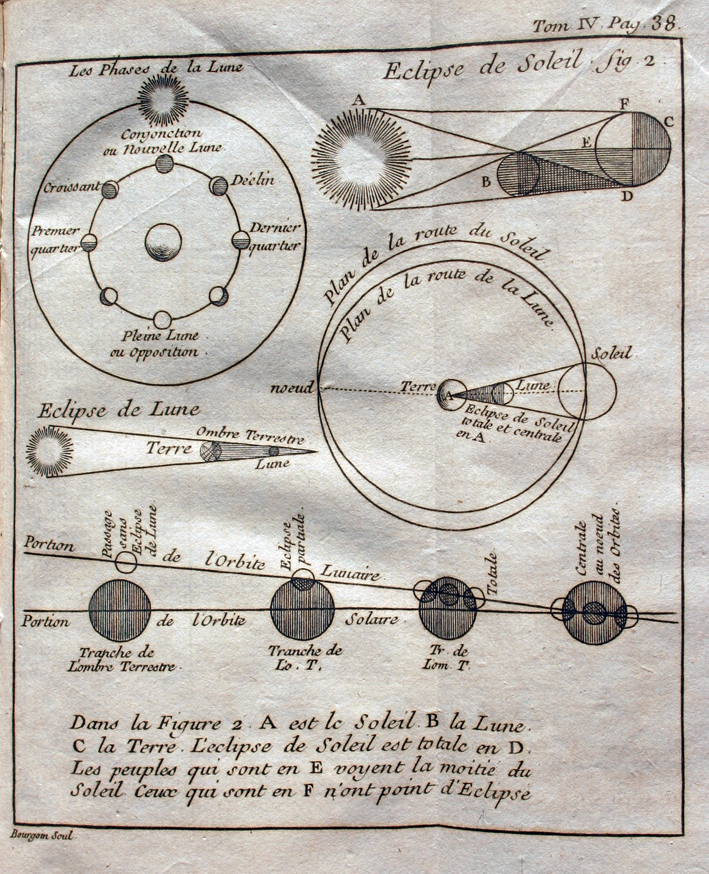 Tom IV. Pag. 38.
Les Phases de la Lune
Conjonction
ou Nouvelle Lune
Croissant
Déclin
Premier
quartier
Dernier
quartier
Pleine Lune
ou Opposition.
Eclipse de Soleil. fig 2.
A
F
C
E
B
D
Plan de la route du Soleil
Plan de la route de la Lune
noeud
Terre
A
Lune
Soleil
Eclipse de Soleil
totale et centrale
en A.
Eclipse de Lune
Terre
Ombre Terrestre
Lune
Portion de l'Orbite Lunaire
Passage
sans
Eclipse
de Lune
Eclipse
partiale
Totale
Centrale
au noeud
des Orbites
Portion de l'Orbite Solaire.
Tranche de
L'ombre Terrestre.
Tranche de
Lo. T.
Tr. de
Lom. T.
Dans la Figure 2. A est le Soleil. B la Lune.
C la Terre. L'eclipse de Soleil est totale en D.
Les peuples qui sont en E voyent la moitié du
Soleil Ceux qui sont en F n'ont point d'Eclipse
Bourgoin Scul